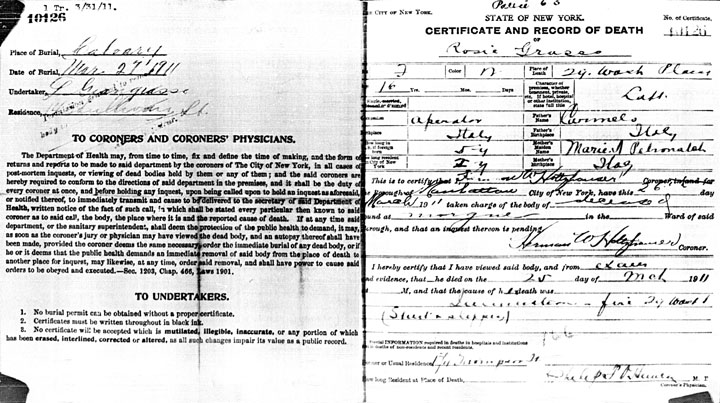 1 Tr. 3/31/11.
10126
Place of Burial, Calvary
Date of Burial, Mar. 27 1911
Undertaker,
Residence, St.
TO CORONERS AND CORONERS' PHYSICIANS.
The Department of Health may, from time to time, fix and define the time of making, and the form of
returns and reports to be made to said department by the coroners of The City of New York, in all cases of
post-mortem inquests, or viewing of dead bodies held by them or any of them; and the said coroners are
hereby required to conform to the directions of said department in the premises, and it shall be the duty of
every coroner at once, and before holding any inquest, upon being called upon to hold an inquest as aforesaid,
or notified thereof, to immediately transmit and cause to be delivered to the secretary of said Department of
Health, written notice of the fact of such call, in which shall be stated every particular then known to said
coroner as to said call, the body, the place where it is and the reported cause of death. If at any time said
department, or the sanitary superintendent, shall deem the protection of the public health to demand, it may,
as soon as the coroner's jury or physician may have viewed the dead body, and an autopsy thereof shall have
been made, provided the coroner deems the same necessary, order the immediate burial of any dead body, or if
he or it deems that the public health demands an immediate removal of said body from the place of death to
another place for inquest, may likewise, at any time, order said removal, and shall have power to cause said
orders to be obeyed and executed.—Sec. 1203, Chap. 466, Laws 1901.
TO UNDERTAKERS.
1. No burial permit can be obtained without a proper certificate.
2. Certificates must be written throughout in black ink.
3. No certificate will be accepted which is mutilated, illegible, inaccurate, or any portion of which
has been erased, interlined, corrected or altered, as all such changes impair its value as a public record.
The City of New York.
STATE OF NEW YORK.
No. of Certificate,
CERTIFICATE AND RECORD OF DEATH
10126
OF
Rosie Grasso
Color W Place of Death 29 Wash Place
16 Yrs. Mos. Days
Character of premises, whether tenement, private, etc. If hotel, hospital or other institution, state full title
Operator Father's Name Carmelo
Birthplace Italy Father's Birthplace Italy
Mother's Maiden Name Marie
Mother's Italy
This is to certify that
Borough of Manhattan City of New York, have this 26 day
March 1911 taken charge of the body of deceased
found at morgue in the Ward of said
Borough, and that an inquest thereon is pending
Coroner.
I hereby certify that I have viewed said body, and from
and evidence, that he died on the 25 day of Mch 1911
M, and that the cause of h death was
fire 29 Wash Pl
166
SPECIAL INFORMATION required in deaths in hospitals and institutions
and in deaths of non-residents and recent residents.
Former or Usual Residence Thompson St
How long Resident at Place of Death,
M. D.
Coroner's Physician.